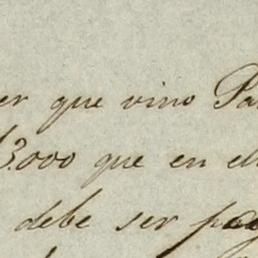 er que vino Pa
3.000 que en el
debe ser pag